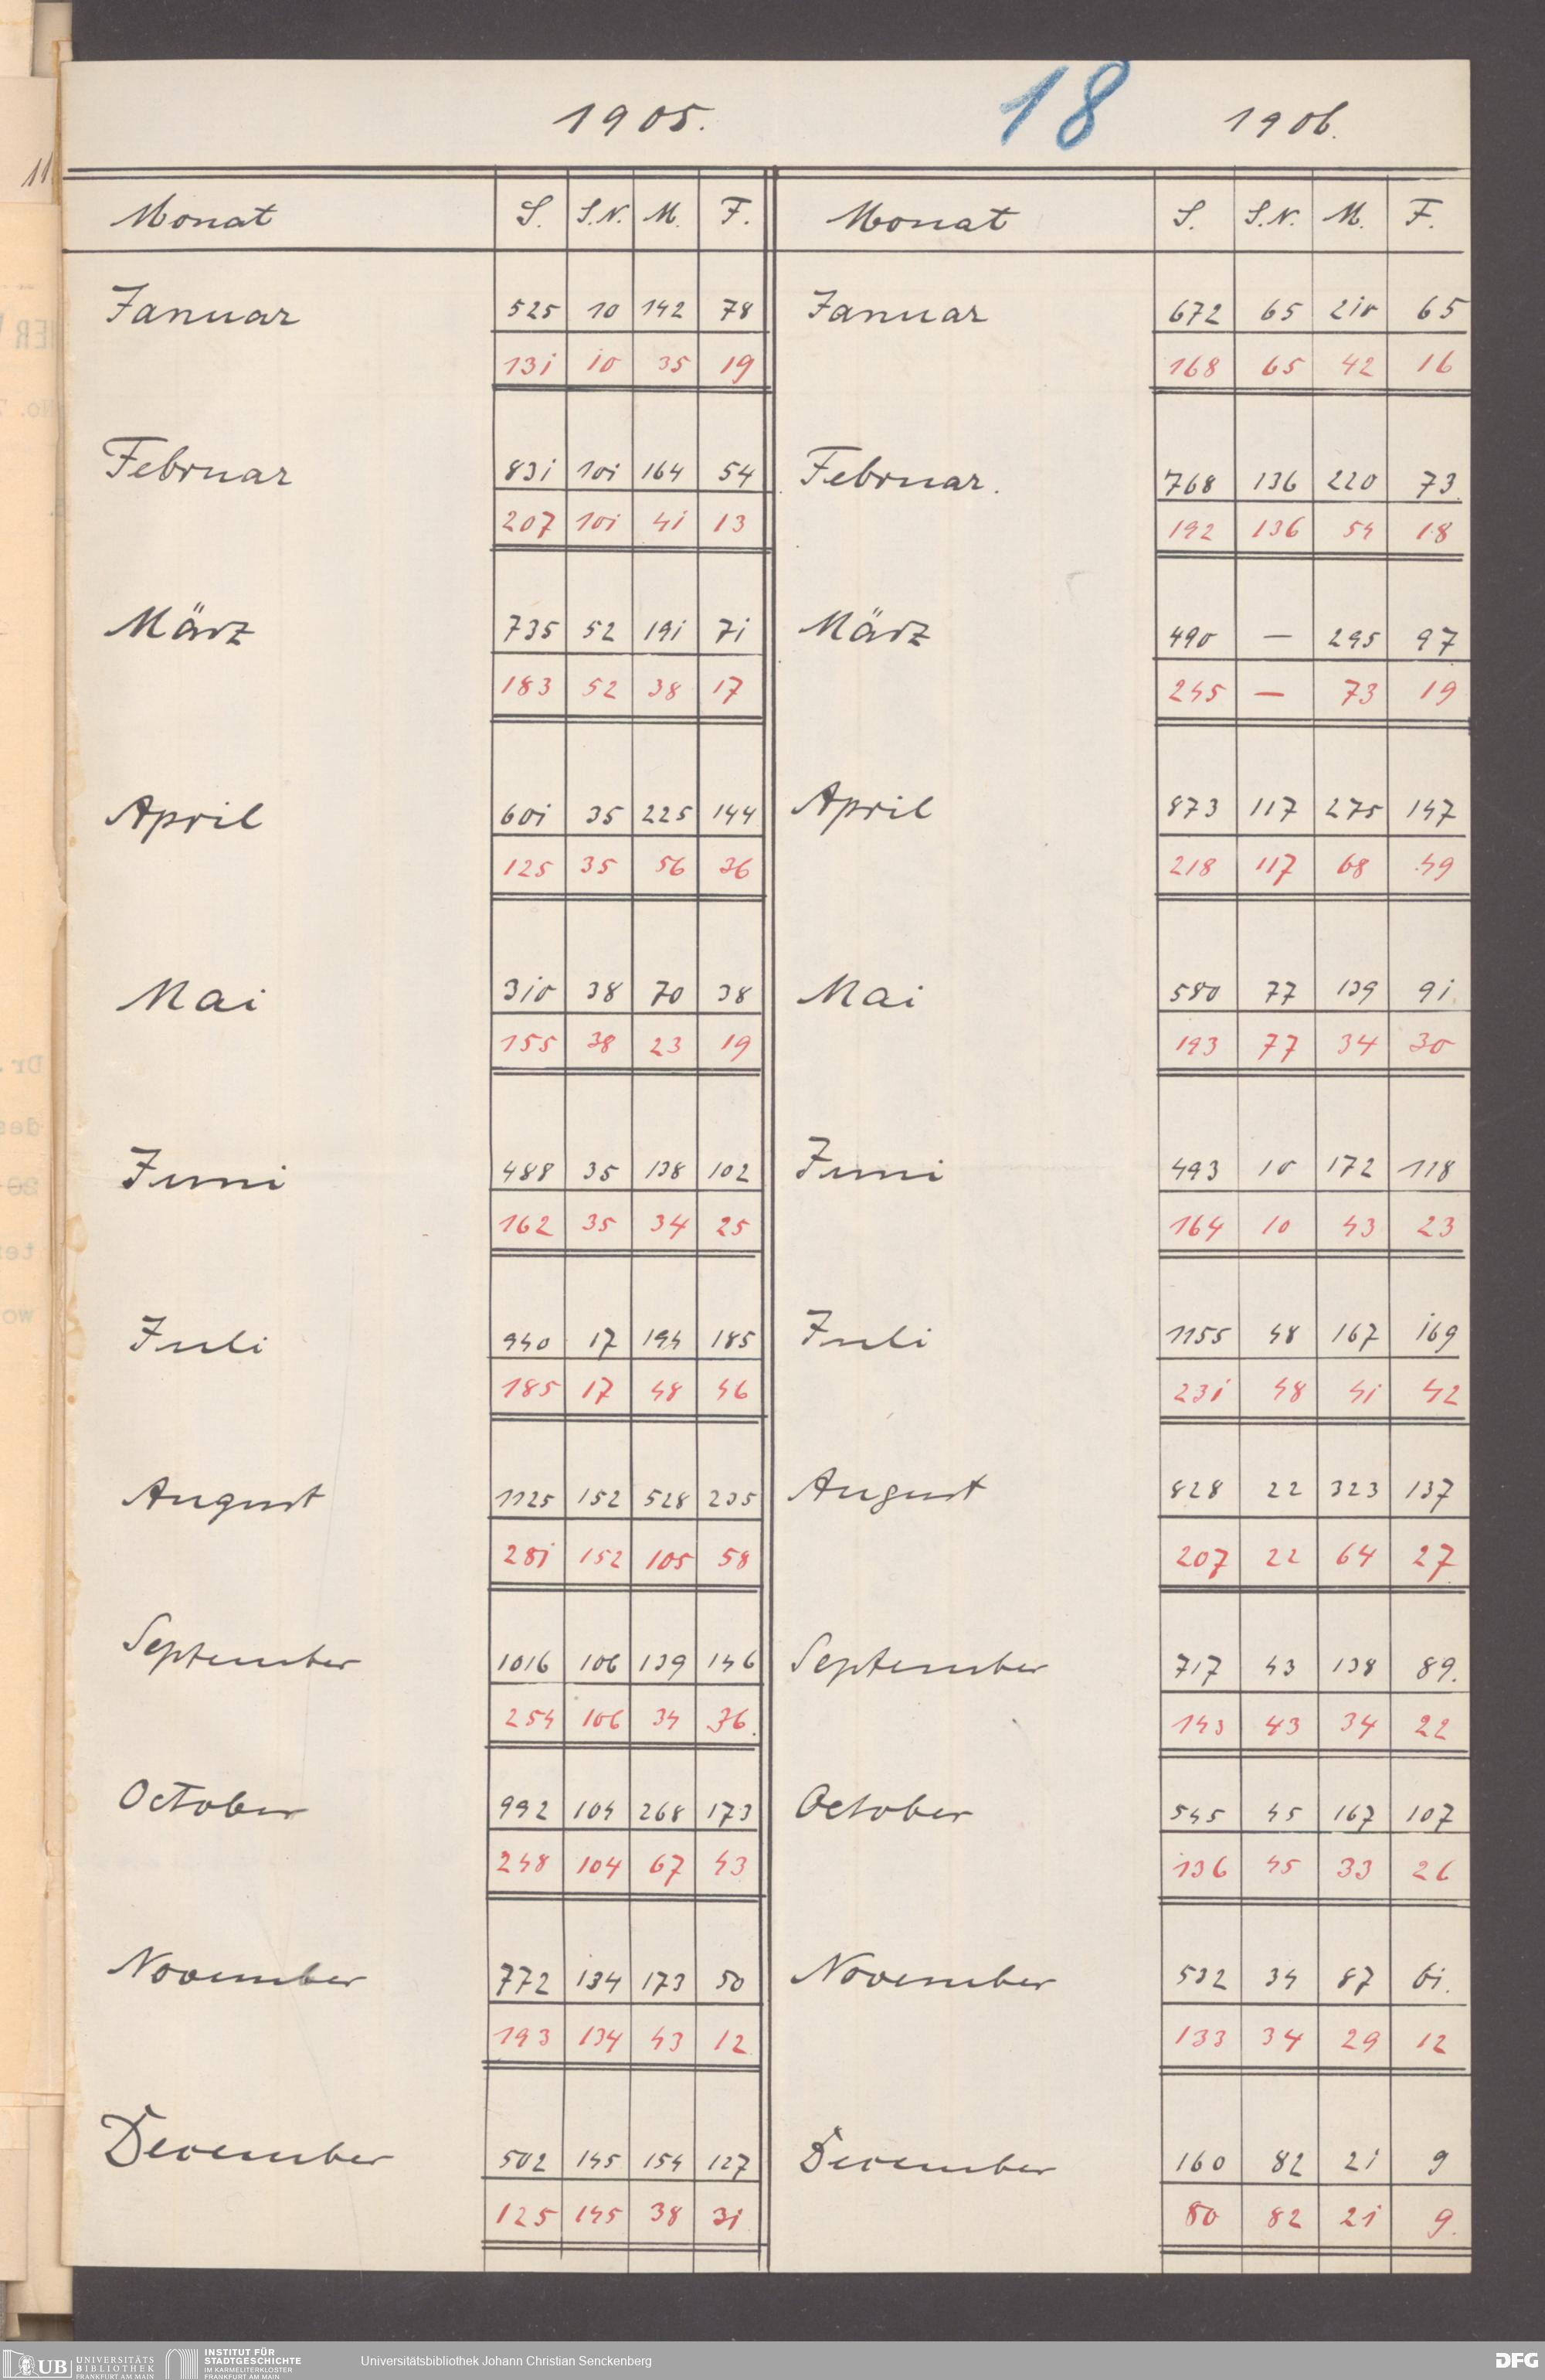 1905. 18 1906.
11
Monat S. S.N. M. F. Monat S. S.N. M. F.
Januar 525 10 142 78 Januar 672 65 210 65
131 10 35 19 168 65 42 16
Februar 831 101 164 54 Februar. 768 136 220 73.
207 101 41 13 192 136 54 18
März 735 52 191 71 März 490 — 295 97
183 52 38 17 245 — 73 19
April 601 35 225 144 April 873 117 275 147
125 35 56 36 218 117 68 49
Mai 310 38 70 38 Mai 580 77 139 91.
155 38 23 19 193 77 34 30
Juni 488 35 138 102 Juni 493 10 172 118
162 35 34 25 164 10 43 23
Juli 940 17 194 185 Juli 1155 48 167 169
185 17 48 46 231 48 41 42
August 1125 152 528 235 August 828 22 323 137
281 152 105 58 207 22 64 27
September 1016 106 139 146 September 717 43 138 89.
254 106 34 36. 143 43 34 22
October 992 104 268 173 October 545 45 167 107
248 104 67 43 136 45 33 26
November 772 134 173 50 November 532 34 87 61.
193 134 43 12 133 34 29 12
December 502 145 154 127 December 160 82 21 9
125 145 38 31 80 82 21 9.
UB UNIVERSITÄTS BIBLIOTHEK FRANKFURT AM MAIN
INSTITUT FÜR STADTGESCHICHTE IM KARMELITERKLOSTER FRANKFURT AM MAIN
Universitätsbibliothek Johann Christian Senckenberg
DFG